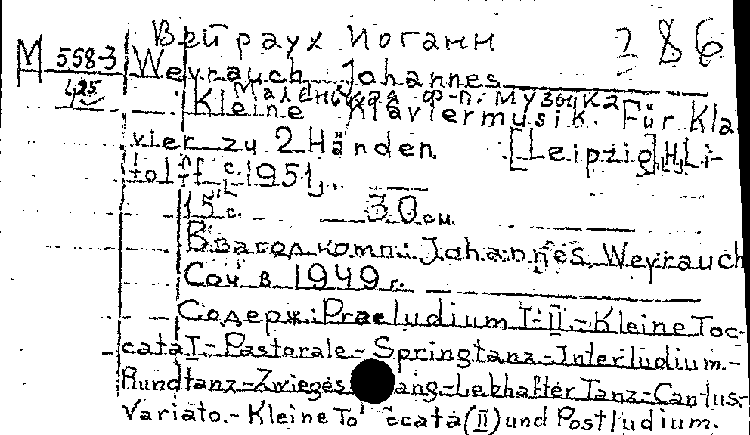 Вейраух Иоганн 286
М 558-3 Weyrauch Johannes
425 Маленькая ф-п. музыка
Kleine Klaviermusik. Für Kla-
vier zu 2 Händen [Leipzig], H, Li-
tolff c. 1951.
15 с. 30 см.
В загол. комп.: Johannes Weyrauch
Соч в 1949 г.
Содерж: Praeludium I-II - Kleine Toc-
cata I - Pastorale - Springtanz - Interludium. -
Rundtanz - Zwiegesang - Lebhafter Tanz - Cantus-
Variato. - Kleine Toccata (II) und Postludium.